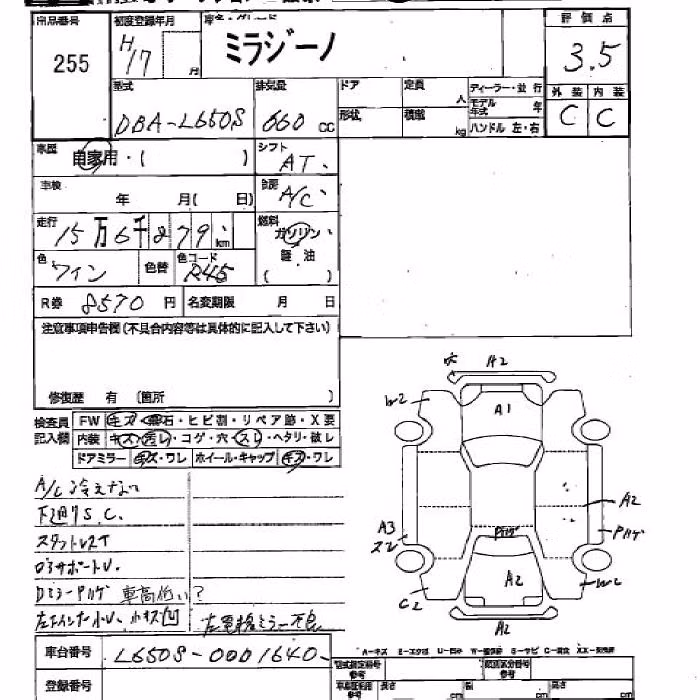 出品番号 初度登録年月 車名・グレード 評価点
255 H17 月 ミラジーノ 3.5
型式 排気量 ドア 定員 人 ディーラー・並行
モデル年式 年 外装 内装
DBA-L650S 660 CC 形状 積載 kg ハンドル 左・右 C C
車歴 自家用・( ) シフト AT
車検 年 月( 日) 冷房 A/C
走行 15万6千879 km 燃料 ガソリン・軽油 ( )
色 ワイン 色替 色コード R45
R券 8570円 名変期限 月 日
注意事項申告欄(不具合内容等は具体的に記入して下さい)
修復歴 有 (箇所 )
検査員記入欄 FW キズ・飛石・ヒビ割・リペア跡・X要
内装 キズ・汚レ・コゲ・穴・スレ・ヘタリ・破レ
ドアミラー キズ・ワレ ホイール・キャップ キズ・ワレ
A/C冷えない
下廻りS.C.
車高低い?
左電格ミラー不良
A2
W2 A1
A2
A3 Pハゲ
スレ
A2 W2
C2
A2
車台番号 L650S-0001640
A-キズ E-エクボ U-凹み W-補修跡 S-サビ C-腐食 XX-交換済
登録番号 型式指定番号 参考 類別区分番号 参考
長さ cm 幅 cm 高さ cm